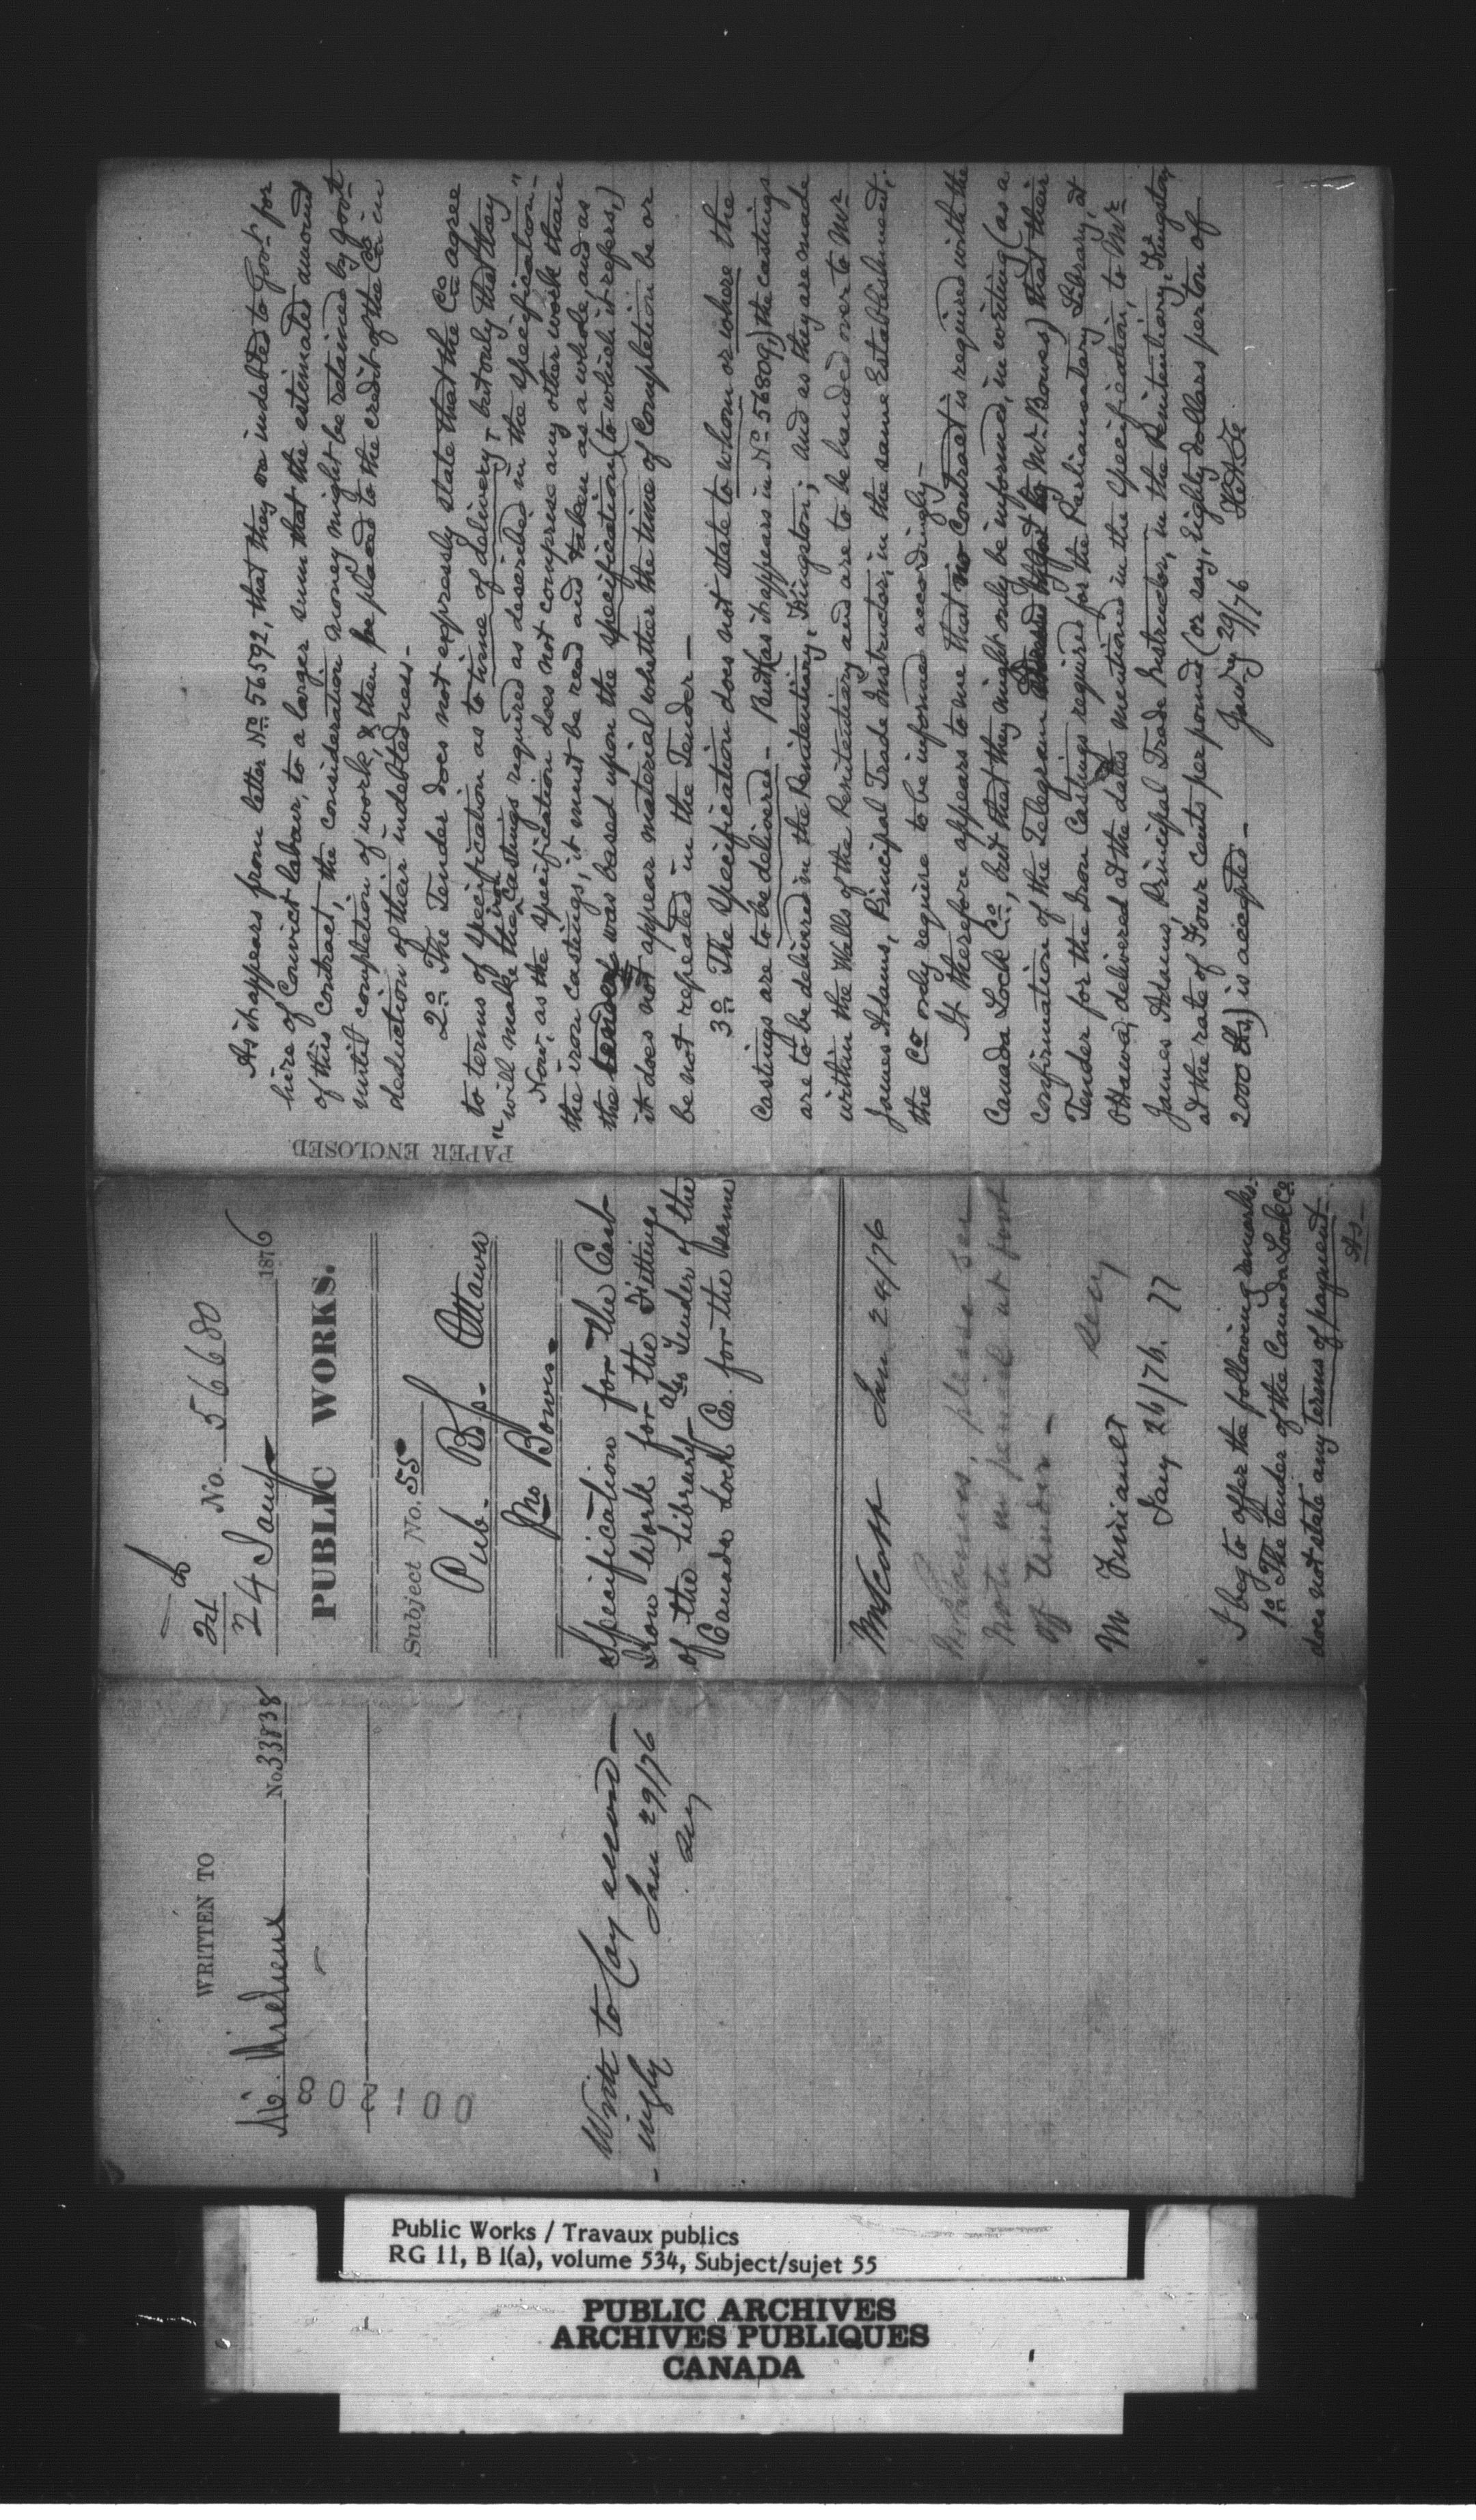 WRITTEN TO
No. 33838
802100
Write to Coy accord-
-ingly
Jan 29/76
Secy
24
24 Jany 1876
No. 56680
PUBLIC WORKS.
Subject No. 55
Pub. Bgs. Ottawa
Jno Bowes.
Specification for the Cast
Iron Work for the Fittings
of the Library. also Tender of the
Canada Lock Co. for the same
Mr Scott Jan 24/76
please see
note in pencil at foot
of tender -
Secy
Mr Fissiault
Jany 26/76. 77
I beg to offer the following remarks.
1o The tender of the Canada Lock Co.
does not state any terms of payment.
As-
PAPER ENCLOSED
As it appears from letter No. 56592, that they are indebted to Govt for
hire of Convict labour, to a larger sum that the estimated amount
of this Contract, the consideration money might be retained by Govt
until completion of work, & then be placed to the credit of the Co. in
deduction of their indebtedness.-
2o The Tender does not expressly state that the Co. agree
to terms of specification as to time of delivery, but only that they
"will make the iron Castings required as described in the specification."
Now, as the specification does not comprise any other work than
the iron castings, it must be read and taken as a whole, and as
the was based upon the specification (to which it refers,)
it does not appear material whether the time of Completion be or
be not repeated in the Tender -
3o The specification does not state to whom or where the
Castings are to be delivered.- But (as it appears in No. 56809,) the castings
are to be delivered in the Penitentiary, Kingston; and as they are made
within the Walls of the Penitentiary and are to be handed over to Mr
James Adams, Principal Trade Instructor, in the same Establishment,
the Co only require to be informed accordingly -
It therefore appears to me that no Contract is required with the
Canada Lock Co., but that they might only be informed, in writing (as a
confirmation of the Telegram by Mr. Bowes) that their
Tender for the Iron Castings required for the Parliamentary Library, at
Ottawa, delivered at the dates mentioned in the specification, to Mr
James Adams, Principal Trade Instructor, in the Penitentiary, Kingston,
at the rate of Four Cents per pound (or say, Eighty dollars per ton of
2000 lbs,) is accepted.-
Jany 29/76